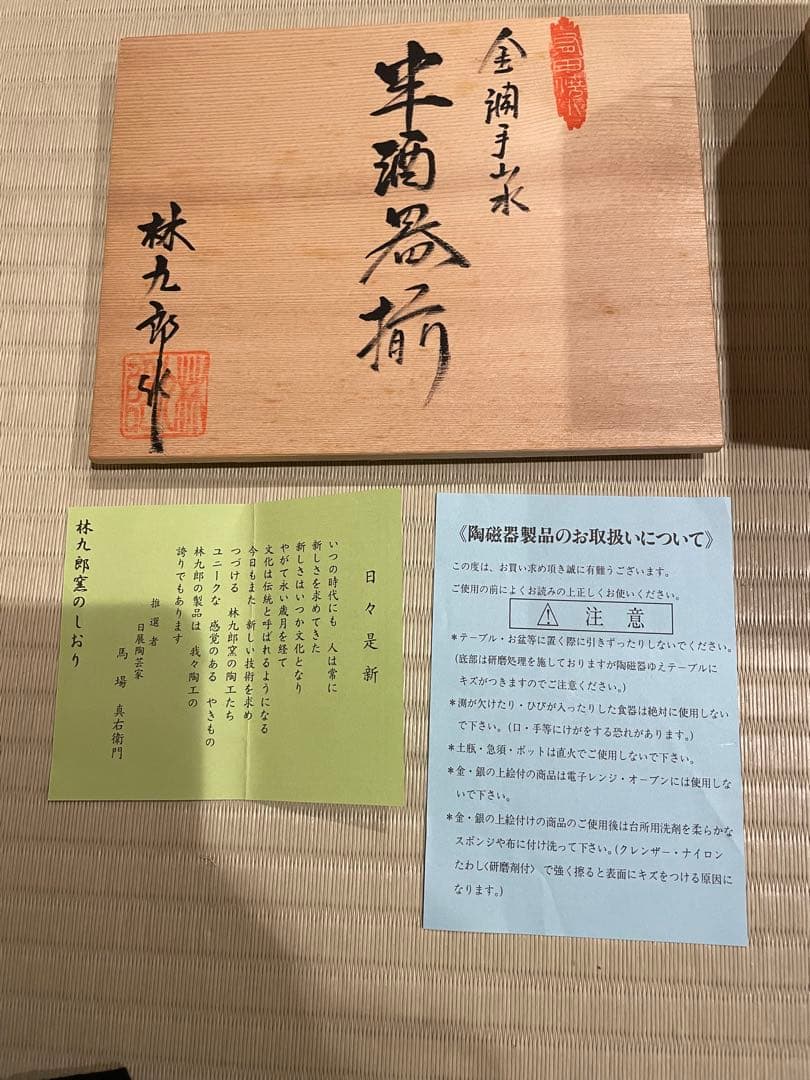 金襴手山水
半酒器揃
林九郎作
日々是新
いつの時代にも　人は常に
新しさを求めてきた
新しさはいつか文化となり
やがて永い歳月を経て
文化は伝統と呼ばれるようになる
今日もまた　新しい技術を求め
つづける　林九郎窯の陶工たち
ユニークな　感覚のある　やきもの
林九郎の製品は　我々陶工の
誇りでもあります
推選者
日展陶芸家
馬場　真右衛門
林九郎窯のしおり
《陶磁器製品のお取扱いについて》
この度は、お買い求め頂き誠に有難うございます。
ご使用の前によくお読みの上正しくお使いください。
注意
＊テーブル・お盆等に置く際に引きずったりしないでください。
(底部は研磨処理を施しておりますが陶磁器ゆえテーブルに
キズがつきますのでご注意ください。)
＊渕が欠けたり・ひびが入ったりした食器は絶対に使用しない
で下さい。(口・手等にけがをする恐れがあります。)
＊土瓶・急須・ポットは直火でご使用しないで下さい。
＊金・銀の上絵付の商品は電子レンジ・オーブンには使用しな
いで下さい。
＊金・銀の上絵付けの商品のご使用後は台所用洗剤を柔らかな
スポンジや布に付け洗って下さい。(クレンザー・ナイロン
たわし〈研磨剤付〉で強く擦ると表面にキズをつける原因に
なります。)